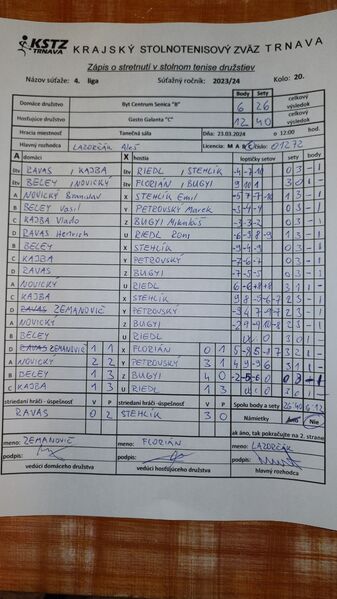 KSTZ TRNAVA KRAJSKÝ STOLNOTENISOVÝ ZVÄZ TRNAVA
Zápis o stretnutí v stolnom tenise družstiev
Názov súťaže: 4. liga Súťažný ročník: 2023/24 Kolo: 20.
Body Sety celkový výsledok
Domáce družstvo Byt Centrum Senica "B" 6 26
Hosťujúce družstvo Gasto Galanta "C" 12 40 celkový výsledok
Hracia miestnosť Tanečná sála Dňa: 23.03.2024 o 12:00 hod.
Hlavný rozhodca LAZORČÁK Aleš Licencia: M A B C číslo: 01272
A domáci X hostia loptičky setov sety body
štv RAVAS / KAJBA štv RIEDL / STEHLÍK -4 -7 -10 0 3 - 1
štv BELEY / NOVICKÝ štv FLORIÁN / BUGYI 9 10 1 3 0 1 -
A NOVICKÝ Branislav X STEHLÍK Emil
B BELEY Vasil Y PETROVSKÝ Marek -3 -4 -4 0 3 - 1
C KAJBA Vlado Z BUGYI Mikuláš -3 -3 -2 0 3 - 1
D RAVAS Henrich U RIEDL Rom
B BELEY X STEHLÍK -9 -4 -9 0 3 - 1
C KAJBA Y PETROVSKÝ -7 -6 -7 0 3 - 1
D RAVAS Z BUGYI -7 -5 -5 0 3 - 1
A NOVICKÝ U RIEDL 6 -6 +8 +8 3 1 1 -
C KAJBA X STEHLÍK 9 8 -5 -6 -7 2 3 - 1
D ZEMANOVIČ Y PETROVSKÝ
A NOVICKÝ Z BUGYI
B BELEY U RIEDL
D ZEMANOVIČ 1 1 X FLORIÁN 0 1
A NOVICKÝ 2 2 Y PETROVSKÝ 3 1
B BELEY 1 3 Z BUGYI 4 0 -2 -5 -6 0 3 - 1
C KAJBA 1 3 U RIEDL 1 3
striedaní hráči - úspešnosť V P striedaní hráči - úspešnosť V P Spolu body a sety 26 40 6 12
RAVAS 0 2 STEHLÍK 3 0 Námietky Áno Nie
ak áno, tak pokračujte na 2. strane
meno: ZEMANOVIČ meno: FLORIÁN meno: LAZORČÁK
podpis: podpis: podpis:
vedúci domáceho družstva vedúci hosťujúceho družstva hlavný rozhodca